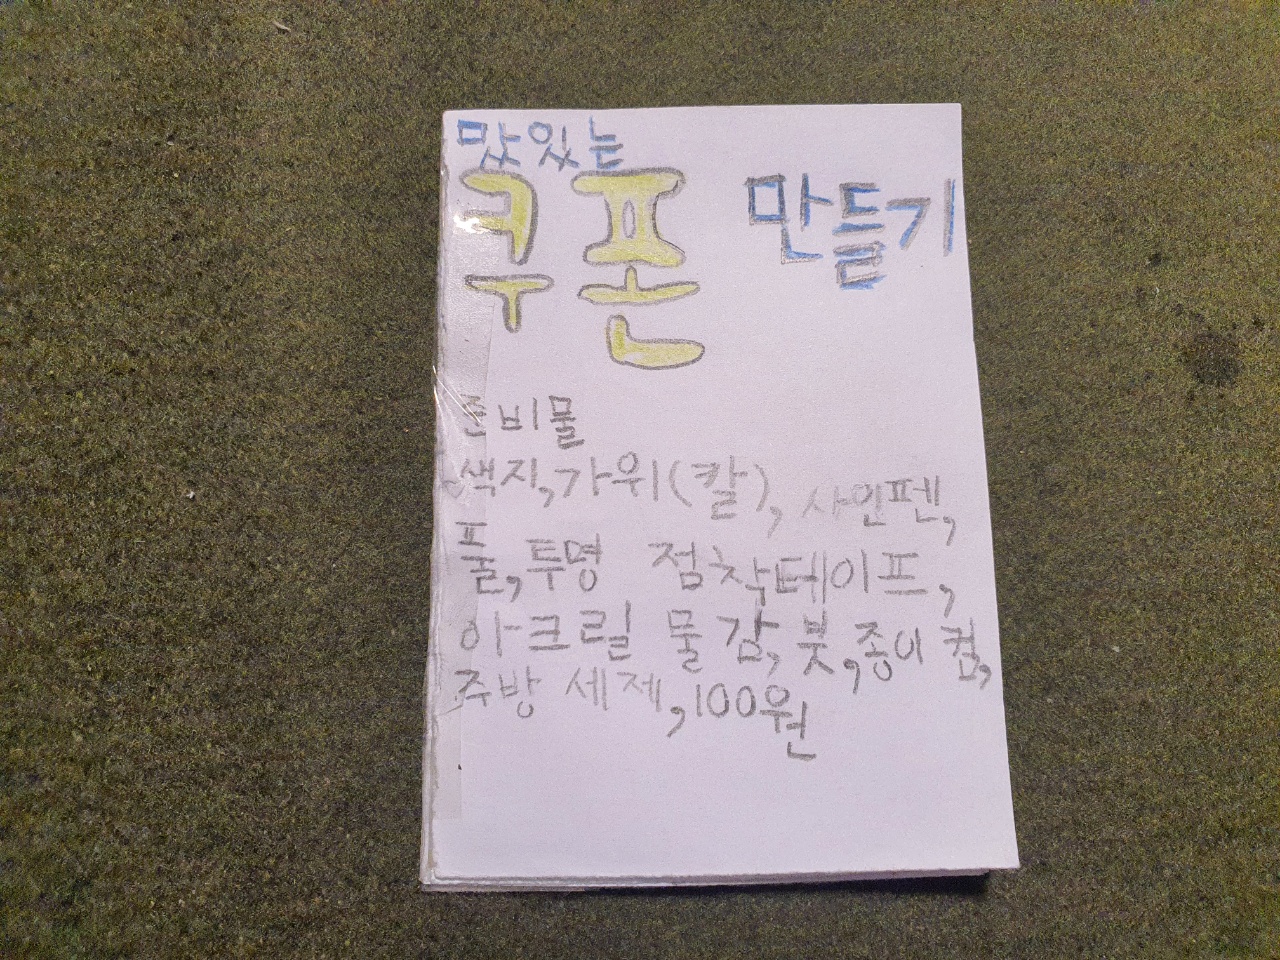 맛있는
쿠폰 만들기
준비물
색지,가위(칼), 사인펜,
풀,투명 점착테이프,
아크릴 물감,붓,종이컵,
주방 세제,100원